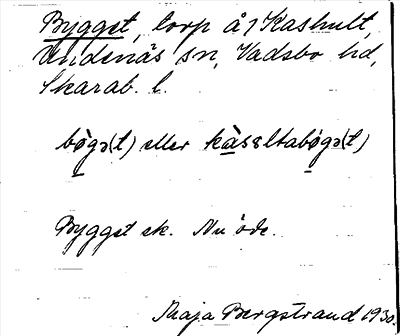 Bygget, torp å? Kashult,
Undenäs sn, Vadsbo hd,
Skarab. l.
bøgə(t) eller kàssltabøgə(t)
Bygget sk. Nu öde.
Maja Bergstrand 1930.